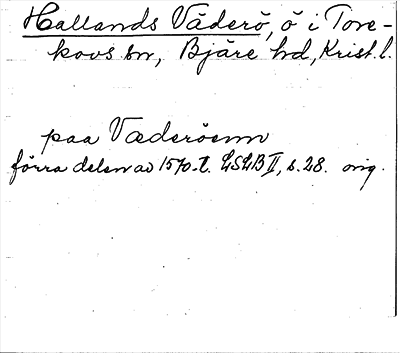 Hallands Väderö, ö i Tore-
kovs sn, Bjäre hd, Krist. l.
paa Væderöenn
förra delen av 1570-t. LSLB II, s. 28. orig.